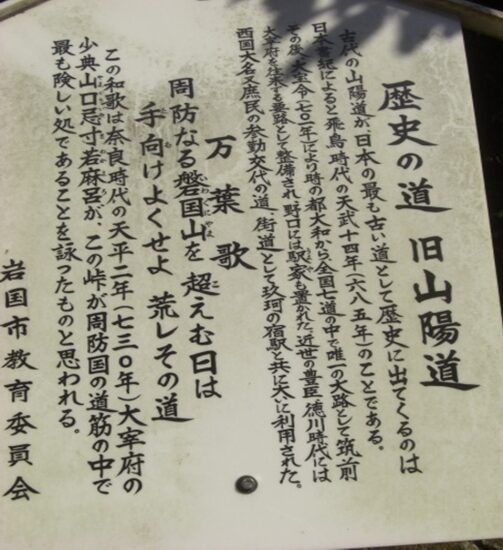 歴史の道 旧山陽道
古代の山陽道が、日本の最も古い道として歴史に出てくるのは
日本書紀によると飛鳥時代の天武十四年(六八五年)のことである。
その後、大宝令(七〇一年)により時の都大和から全国七道の中で唯一の大路として筑前
大宰府を往来する要路として整備され、野口には駅家も置かれた。近世の豊臣、徳川時代には
西国大名又庶民の参勤交代の道、街道として玖珂の宿駅と共に大に利用された。
万葉歌
周防なる磐国山を 超えむ日は
手向けよくせよ 荒しその道
この和歌は奈良時代の天平二年(七三〇年)大宰府の
少典山口忌寸若麻呂が、この峠が周防国の道筋の中で
最も険しい処であることを詠ったものと思われる。
岩国市教育委員会